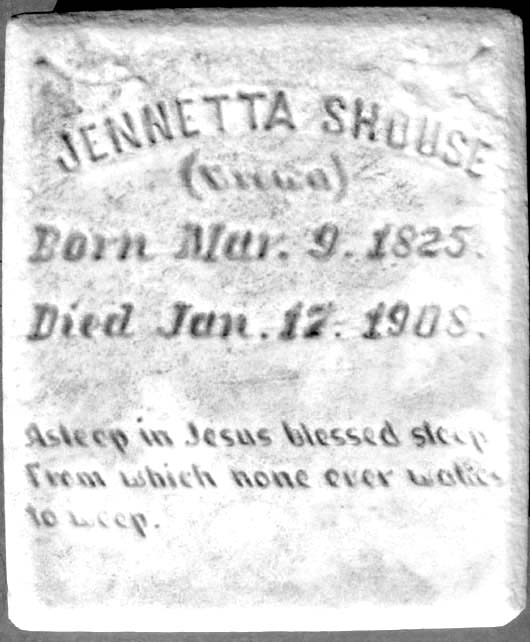 JENNETTA SHOUSE
Born Mar. 9. 1825.
Died Jan. 17. 1908.
Asleep in Jesus blessed sleep
From which none ever wakes
to weep.